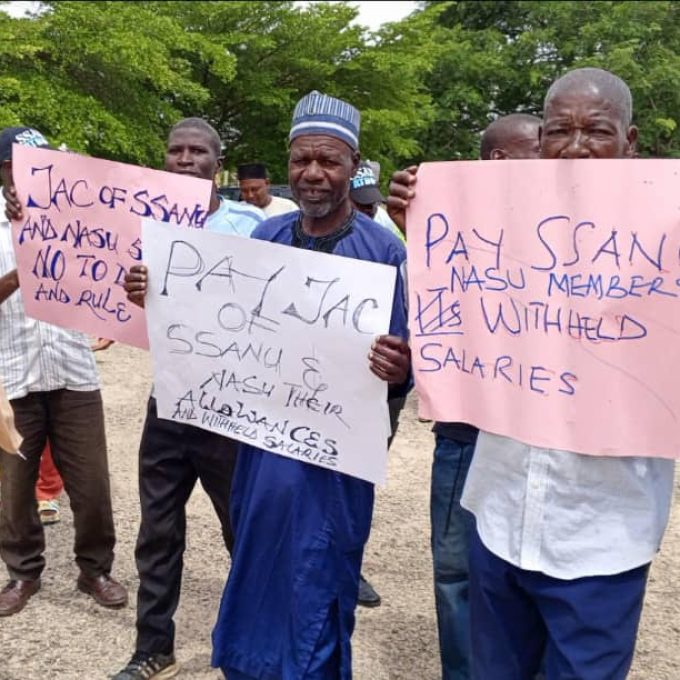 JAC OF SSANU
AND NASU S
NO TO D
AND RULE
PAY JAC
OF
SSANU &
NASU THEIR
ALLOWANCES
AND WITHHELD SALARIES
PAY SSANU
NASU MEMBERS
WITHHELD
SALARIES
SSANU